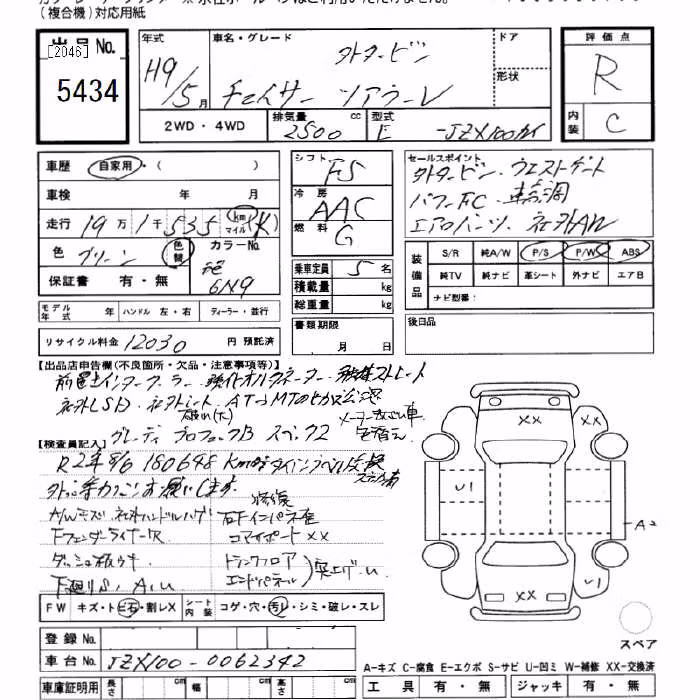 (複合機)対応用紙
出品No.
[2046]
5434
年式 H9/5月
車名・グレード 外タービン
チェイサー ツアラーV
ドア
形状
2WD・4WD
排気量 2500 cc
型式 E -JZX100カイ
評価点 R
内装 C
車歴 自家用・( )
車検 年 月
走行 19万1千535 km マイル (K)
色 グリーン 色替
カラーNo. 6N9
保証書 有・無
モデル年式 年 ハンドル 左・右 ディーラー・並行
リサイクル料金 12030 円 預託済
シフト F5
冷房 AAC
燃料 G
乗車定員 5 名
積載量 kg
総重量 kg
書類期限
月 日
セールスポイント
外タービン、ウエストゲート
パワーFC、車高調
エアロパーツ、社外AW
装備品 S/R 純A/W P/S P/W ABS
純TV 純ナビ 革シート 外ナビ エアB
ナビ型番:
後日品
【出品店申告欄(不良箇所・欠品・注意事項等)】
前置きインタークーラー 強化オルタネーター
社外LSD、社外シート、AT→MT
グレッディ プロフェックB スペック2
【検査員記入】
R2年8/6 180698km時
A/Wキズ 社外ハンドルハゲ
Fフェンダーライナー欠
コアサポートXX
ダッシュ板ウキ
トランクフロア
エンドパネル 突上げ.U
下廻りS、A、U
FW キズ・トビ石・割レX シート内装 コゲ・穴・汚レ・シミ・破レ・スレ
登録No.
車台No. JZX100-0062342
車庫証明用 長さ cm 幅 cm 高さ cm
XX
XX
U1
A2
XX
U1
スペア
A-キズ C-腐食 E-エクボ S-サビ U-凹ミ W-補修 XX-交換済
工具 有・無 ジャッキ 有・無